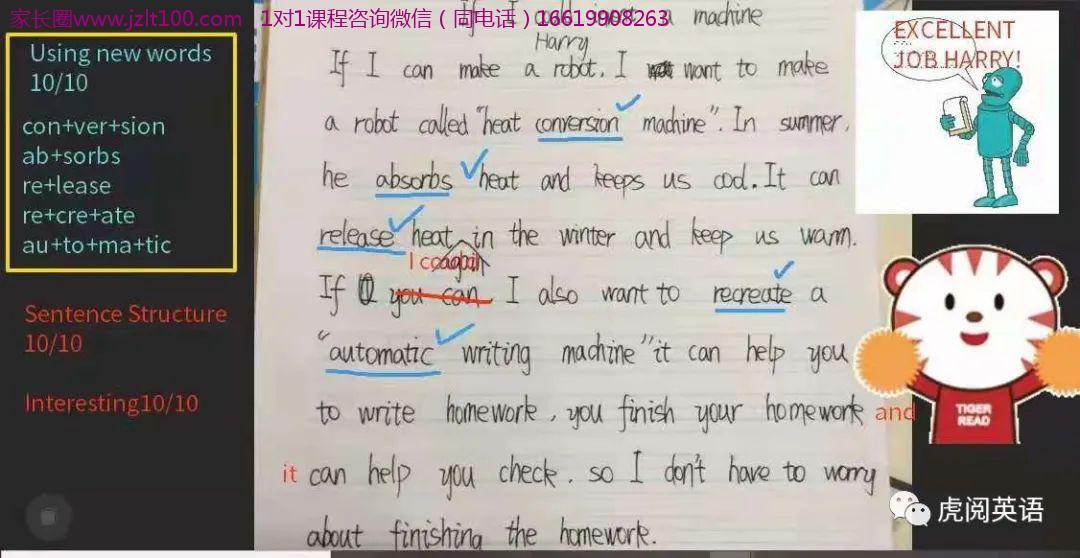 家长圈www.jzlt100.com 1对1课程咨询微信（同电话）16619908263
Using new words
10/10
con+ver+sion
ab+sorbs
re+lease
re+cre+ate
au+to+ma+tic
Sentence Structure
10/10
Interesting10/10
If I a machine
Harry
If I can make a robot. I want to make
a robot called "heat conversion machine". In summer,
he absorbs heat and keeps us cool. It can
release heat in the winter and keep us warm.
I could
If you can, I also want to recreate a
"automatic writing machine" it can help you
to write homework, you finish your homework and
it can help you check. so I don't have to worry
about finishing the homework.
EXCELLENT
JOB HARRY!
TIGER
READ
虎阅英语